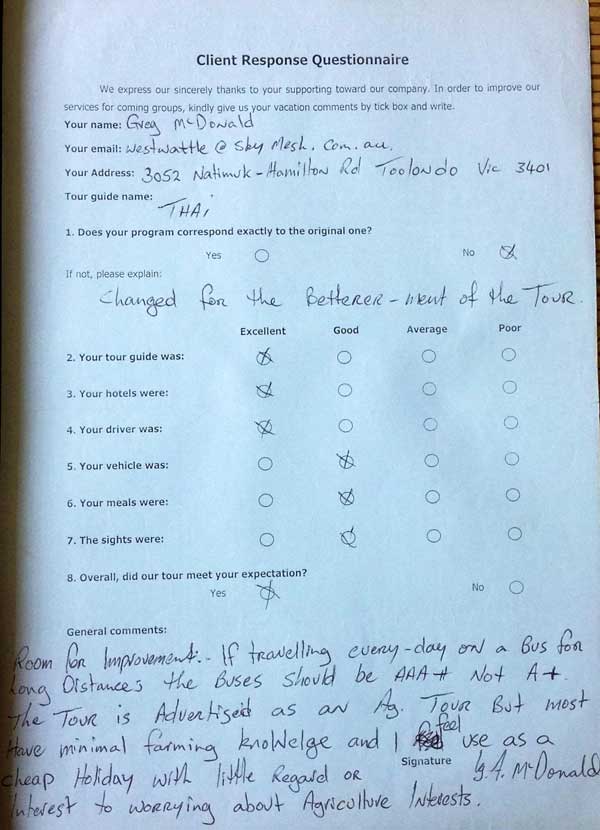 Client Response Questionnaire
We express our sincerely thanks to your supporting toward our company. In order to improve our
services for coming groups, kindly give us your vacation comments by tick box and write.
Your name: Greg McDonald
Your email: westwattle @ Sky Mesh. Com. au.
Your Address: 3052 Natimuk - Hamilton Rd Toolondo Vic 3401
Tour guide name: THAi
1. Does your program correspond exactly to the original one?
Yes No
If not, please explain:
Changed for the Betterer-ment of the Tour.
Excellent Good Average Poor
2. Your tour guide was:
3. Your hotels were:
4. Your driver was:
5. Your vehicle was:
6. Your meals were:
7. The sights were:
8. Overall, did our tour meet your expectation?
Yes No
General comments:
Room for Improvement:- If travelling every-day on a Bus for
Long Distances the Buses should be AAA+ Not A+.
The Tour is Advertised as an Ag. Tour But most
Have minimal farming knowlelge and I feel use as a
Cheap Holiday with little Regard or
Signature G.A. McDonald
Interest to worrying about Agriculture Interests.